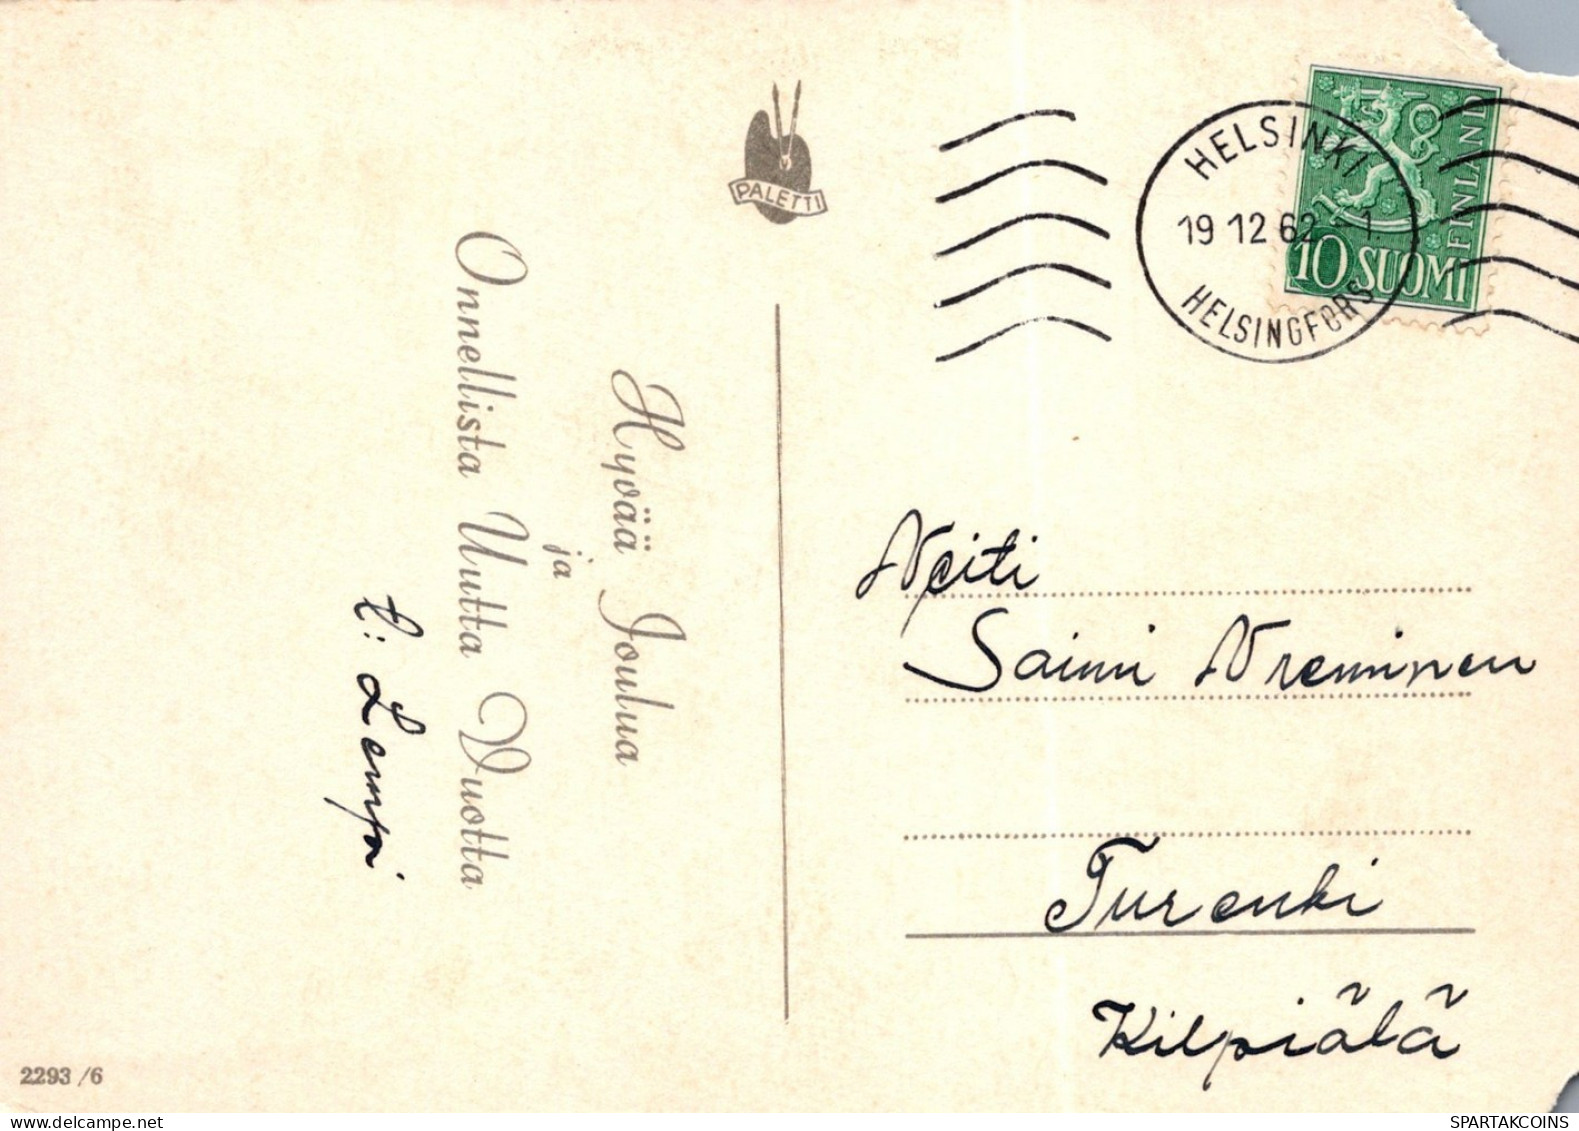 PALETTI
Hyvää Joulua
ja
Onnellista Uutta Vuotta
t: Lempi
HELSINKI
19 12 62 - 1.
HELSINGFORS
10 SUOMI
FINLAND
Neiti
Saimi
Turenki
Kilpiälä
2293 /6
SPARTAKCOINS